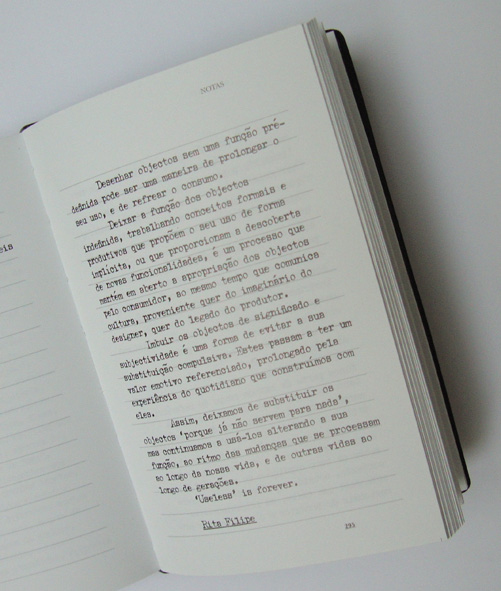 eis
NOTAS
Desenhar objectos sem uma função pré-
definida pode ser uma maneira de prolongar o
seu uso, e de refrear o consumo.
Deixar a função dos objectos
indefinida, trabalhando conceitos formais e
produtivos que propõem o seu uso de forma
implícita, ou que proporcionam a descoberta
de novas funcionalidades, é um processo que
mantém em aberto a apropriação dos objectos
pelo consumidor, ao mesmo tempo que comunica
cultura, proveniente quer do imaginário do
designer, quer do legado do produtor.
Imbuir os objectos de significado e
subjectividade é uma forma de evitar a sua
substituição compulsiva. Estes passam a ter um
valor emotivo referenciado, prolongado pela
experiência do quotidiano que construímos com
eles.
Assim, deixamos de substituir os
objectos 'porque já não servem para nada',
mas continuamos a usá-los alterando a sua
função, ao ritmo das mudanças que se processam
ao longo da nossa vida, e de outras vidas ao
longo de gerações.
'Useless' is forever.
Rita Filipe
193